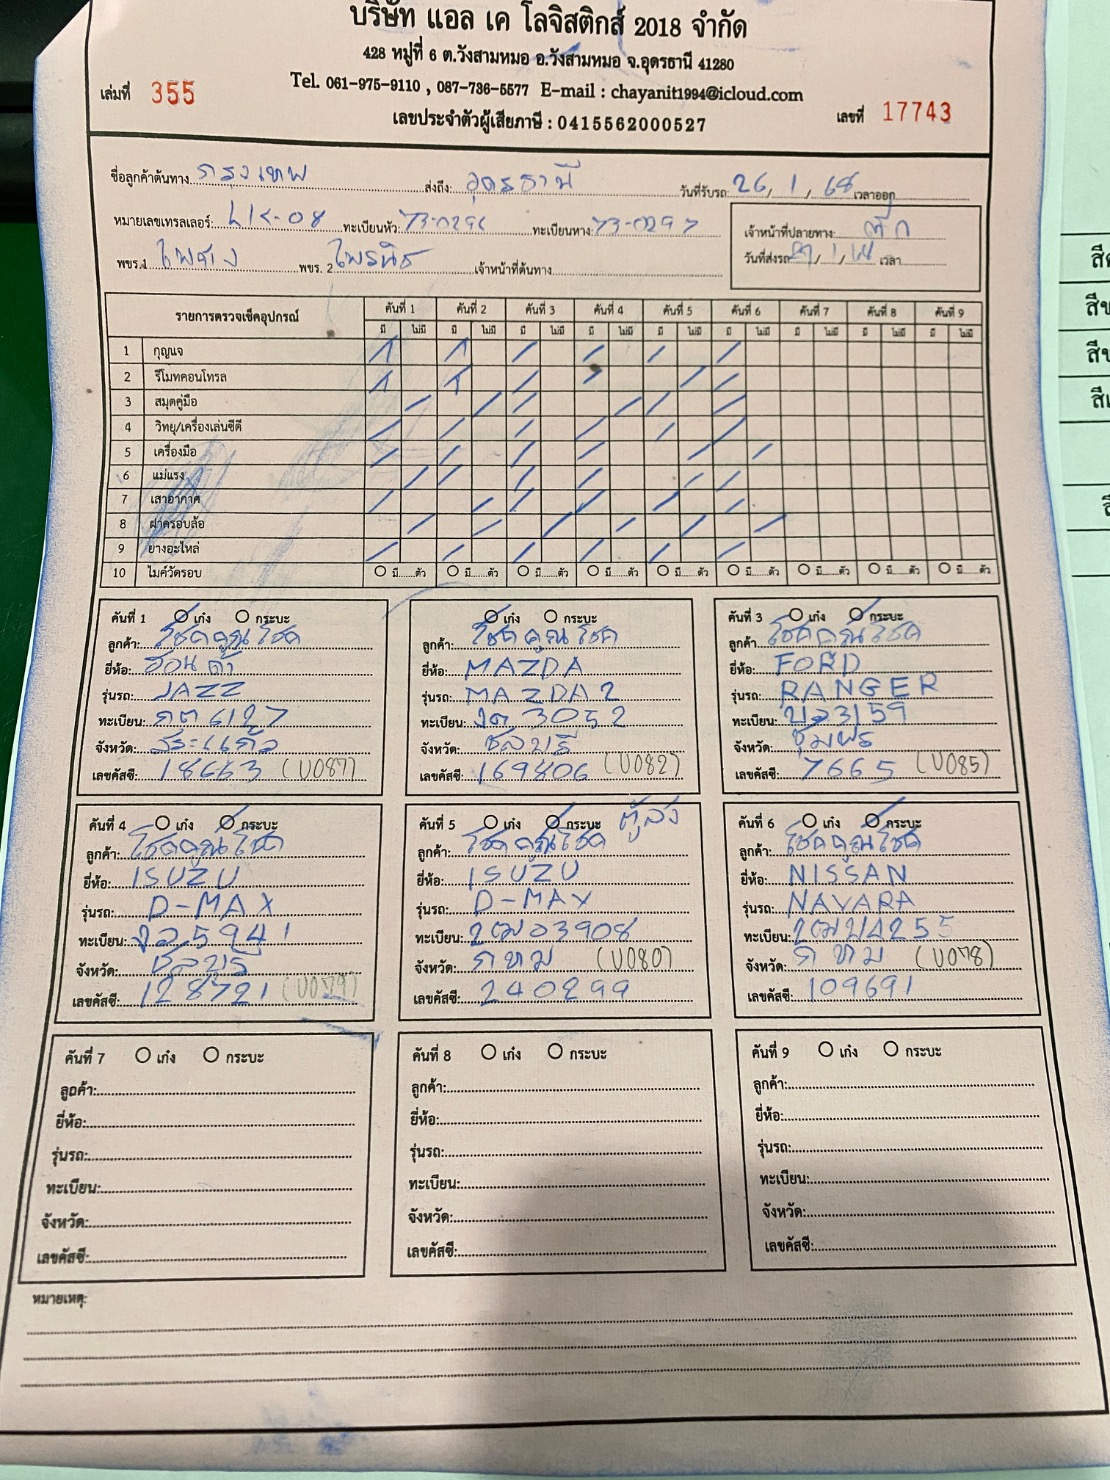 บริษัท แอล เค โลจิสติกส์ 2018 จำกัด
428 หมู่ที่ 6 ต.วังสามหมอ อ.วังสามหมอ จ.อุดรธานี 41280
เล่มที่ 355 Tel. 061-975-9110 , 087-736-5577 E-mail : chayanit1994@icloud.com
เลขประจำตัวผู้เสียภาษี : 0415562000527 เลขที่ 17743
ชื่อลูกค้าต้นทาง กรุงเทพ ส่งถึง: อุดรธานี วันที่รับรถ 26/1/68 เวลาออก
หมายเลขเทรลเลอร์: ทะเบียนหัว: ทะเบียนหาง: 73-0297 เจ้าหน้าที่ปลายทาง:
พขร.1 พขร. 2 เจ้าหน้าที่ต้นทาง วันที่ส่งรถ เวลา
รายการตรวจเช็คอุปกรณ์ คันที่ 1 คันที่ 2 คันที่ 3 คันที่ 4 คันที่ 5 คันที่ 6 คันที่ 7 คันที่ 8 คันที่ 9
มี ไม่มี มี ไม่มี มี ไม่มี มี ไม่มี มี ไม่มี มี ไม่มี มี ไม่มี มี ไม่มี มี ไม่มี
1 กุญแจ
2 รีโมทคอนโทรล
3 สมุดคู่มือ
4 วิทยุ/เครื่องเล่นซีดี
5 เครื่องมือ
6 แม่แรง
7 เสาอากาศ
8 ฝาครอบล้อ
9 ยางอะไหล่
10 ไมค์วัดรอบ มี......ตัว มี......ตัว มี......ตัว มี......ตัว มี......ตัว มี......ตัว มี......ตัว มี......ตัว มี......ตัว
คันที่ 1 เก๋ง กระบะ
ลูกค้า: โชคคูณโชค
ยี่ห้อ: ฮอนด้า
รุ่นรถ: JAZZ
ทะเบียน: กต6127
จังหวัด: สระแก้ว
เลขคัสซี: 18663 (U087)
เก๋ง กระบะ
ลูกค้า: โชคคูณโชค
ยี่ห้อ: MAZDA
รุ่นรถ: MAZDA2
ทะเบียน: 3052
จังหวัด: ชลบุรี
เลขคัสซี: 169806 (U082)
คันที่ 3 เก๋ง กระบะ
ลูกค้า: โชคคูณโชค
ยี่ห้อ: FORD
รุ่นรถ: RANGER
ทะเบียน: 3159
จังหวัด: ชุมพร
เลขคัสซี: 7665 (U085)
คันที่ 4 เก๋ง กระบะ
ลูกค้า: โชคคูณโชค
ยี่ห้อ: ISUZU
รุ่นรถ: D-MAX
ทะเบียน: 5941
จังหวัด: ชลบุรี
เลขคัสซี: 128721 (U079)
คันที่ 5 เก๋ง กระบะ
ลูกค้า: โชคคูณโชค
ยี่ห้อ: ISUZU
รุ่นรถ: D-MAX
ทะเบียน: 2ฒอ3908
จังหวัด: กทม (U080)
เลขคัสซี: 240299
คันที่ 6 เก๋ง กระบะ
ลูกค้า: โชคคูณโชค
ยี่ห้อ: NISSAN
รุ่นรถ: NAVARA
ทะเบียน: 2ฒบ4255
จังหวัด: กทม (U078)
เลขคัสซี: 109691
คันที่ 7 เก๋ง กระบะ
ลูกค้า:
ยี่ห้อ:
รุ่นรถ:
ทะเบียน:
จังหวัด:
เลขคัสซี:
คันที่ 8 เก๋ง กระบะ
ลูกค้า:
ยี่ห้อ:
รุ่นรถ:
ทะเบียน:
จังหวัด:
เลขคัสซี:
คันที่ 9 เก๋ง กระบะ
ลูกค้า:
ยี่ห้อ:
รุ่นรถ:
ทะเบียน:
จังหวัด:
เลขคัสซี:
หมายเหตุ: